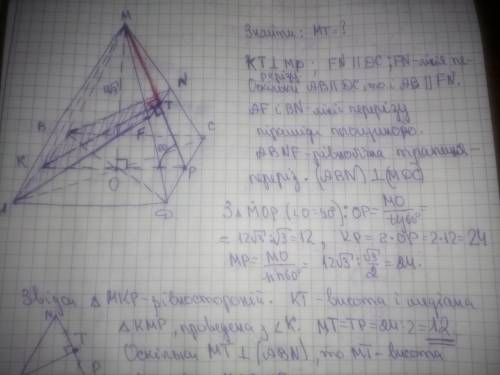 M
N
T
B
F
C
K
P
O
A
Знайти: MT=?
KT⊥MP; FN∥DC; FN-лінія пе-
різу
Оскільки AB∥DC, то і AB∥FN.
AF і BN-лінії перерізу
піраміди площиною.
ABNF-рівнобічна трапеція-
переріз. (ABN)⊥(MDC)
З △MOP (∠O=90°): OP= MO / tg60° =
= 12√3:√3=12, KP=2·OP=2·12=24
MP= MO / sin60° = 12√3: √3/2 =24.
Звідси △MKP-рівносторонній. KT-висота і медіана
△KMP, проведена з ∠K. MT=TP=24:2=12
Оскільки MT⊥(ABN), то MT-висота
M
T
P